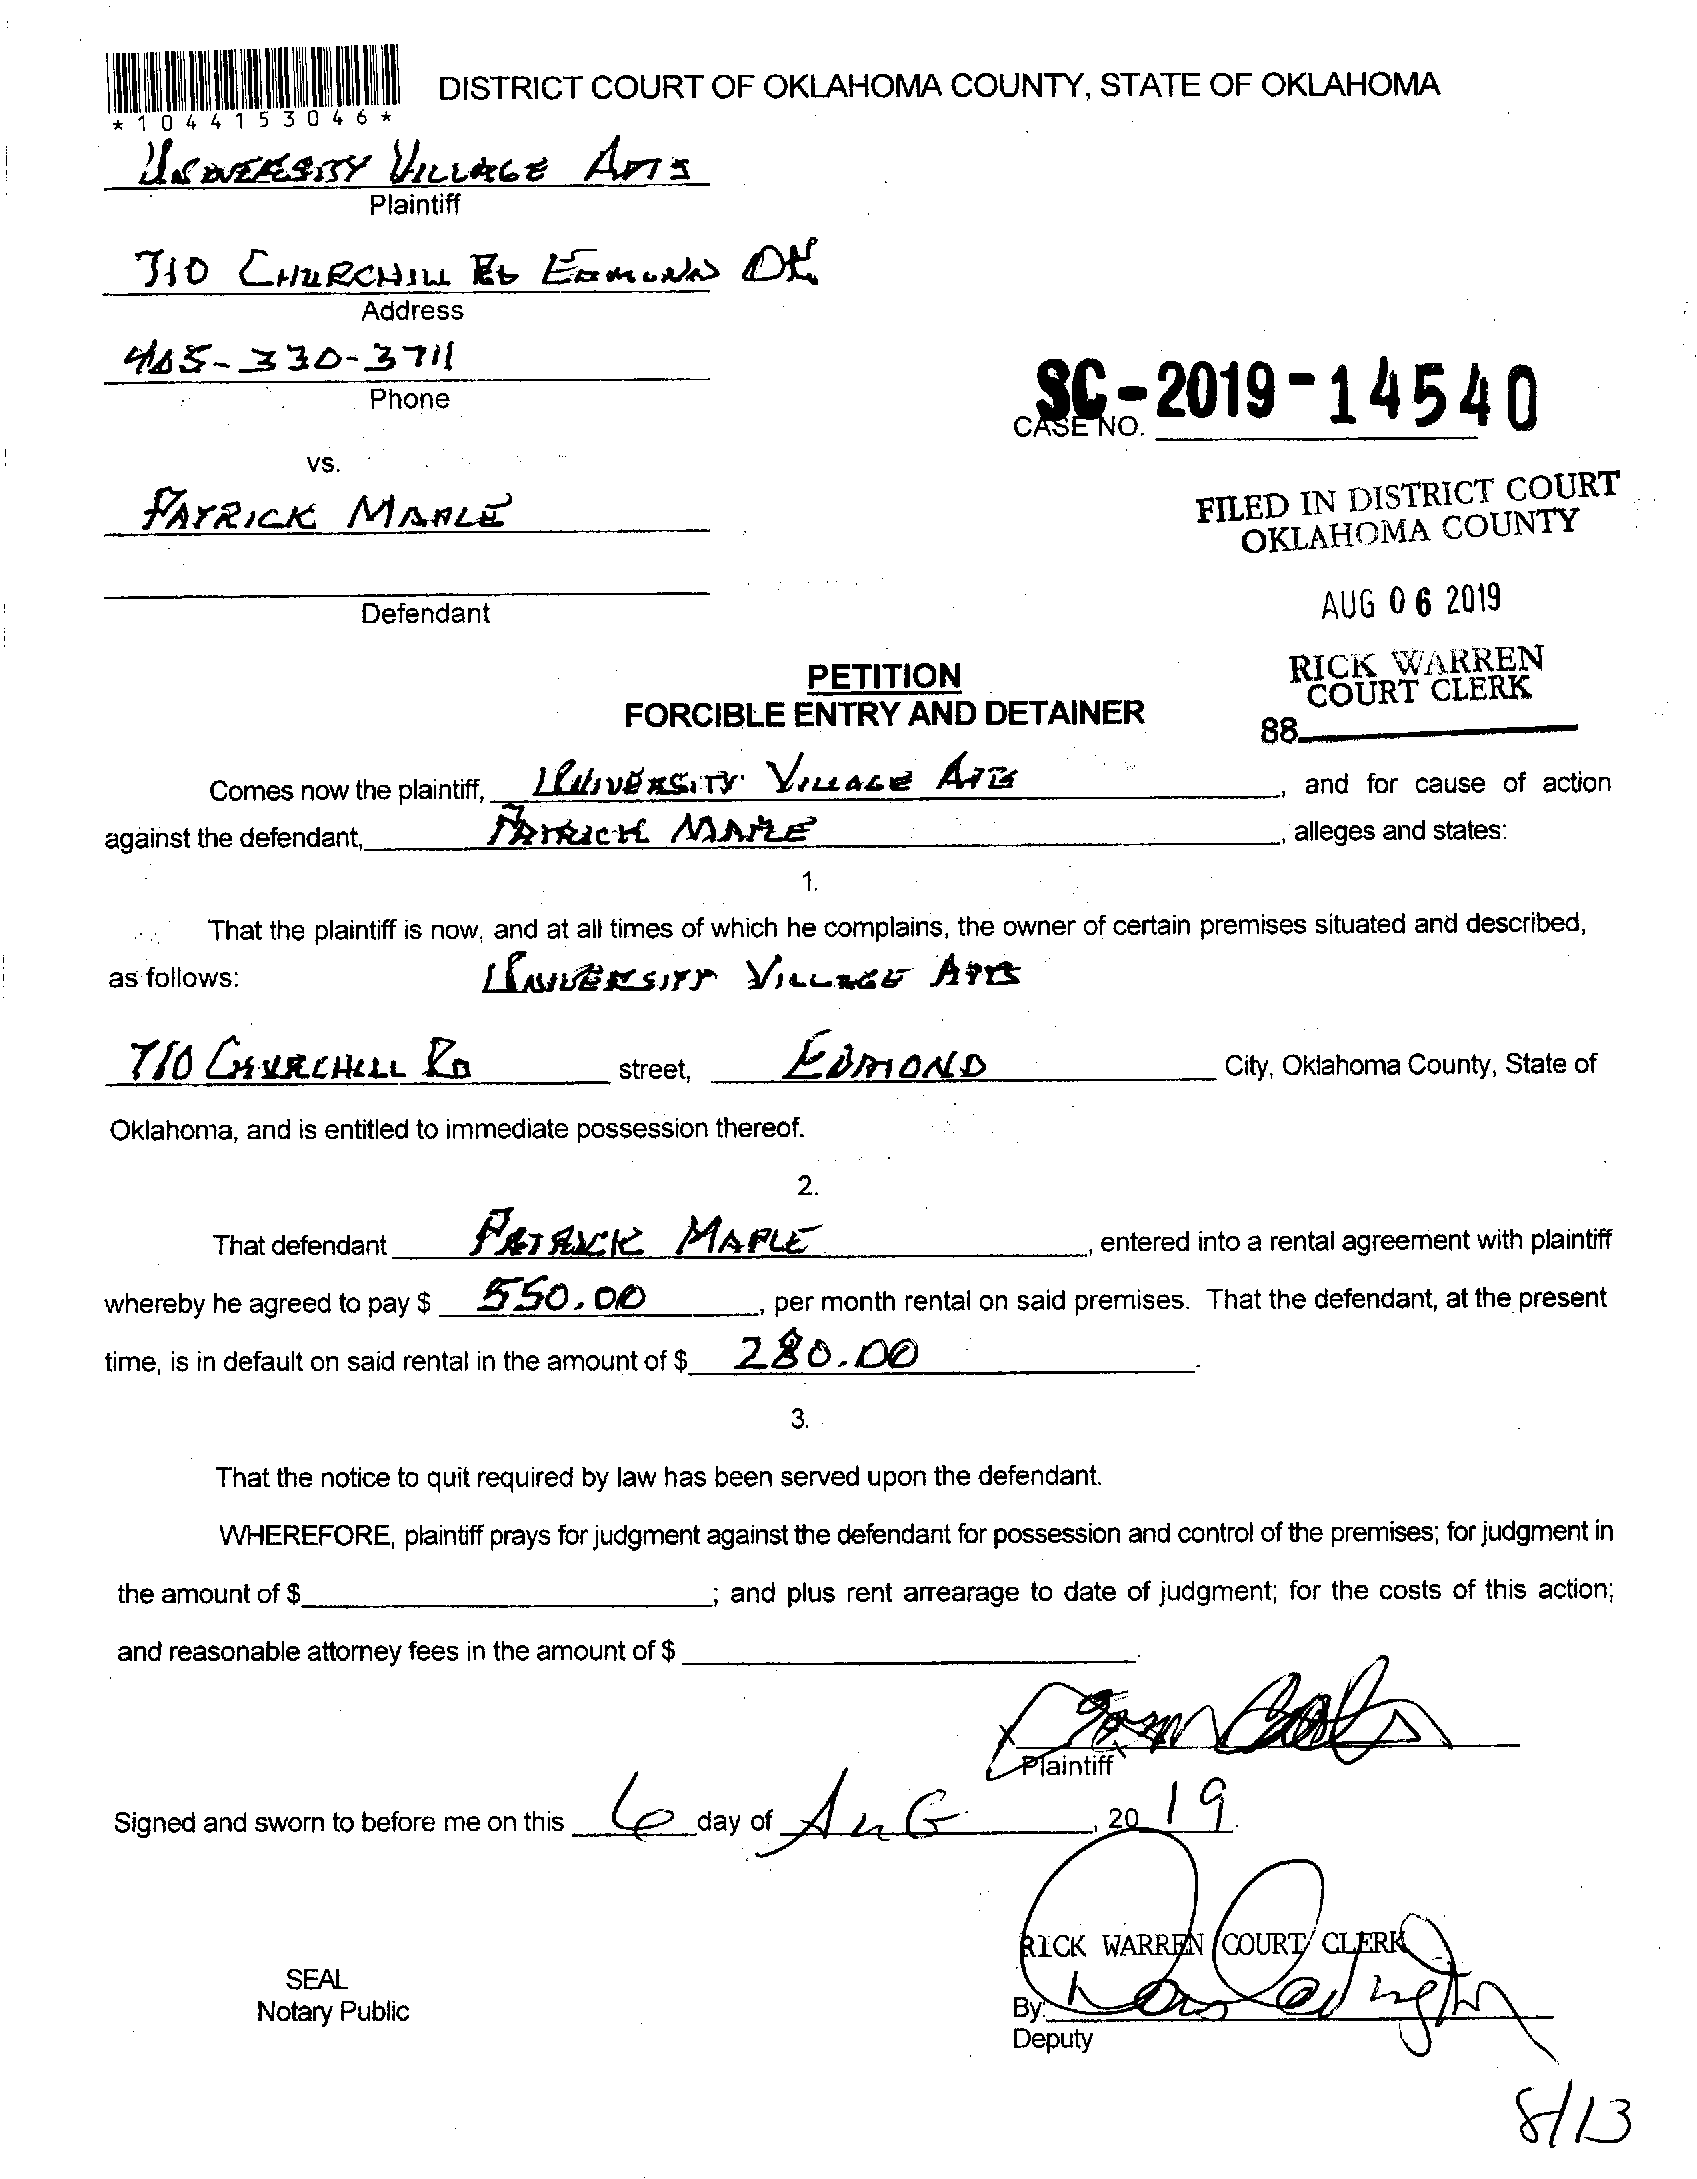 DISTRICT COURT OF OKLAHOMA COUNTY, STATE OF OKLAHOMA
*1044153046*
UNIVERSITY VILLAGE APTS
Plaintiff
710 CHURCHILL RD EDMOND OK
Address
405-330-3711
Phone
SC-2019-14540
CASE NO.
vs.
PATRICK MAPLE
FILED IN DISTRICT COURT
OKLAHOMA COUNTY
Defendant
AUG 06 2019
RICK WARREN
COURT CLERK
88
PETITION
FORCIBLE ENTRY AND DETAINER
Comes now the plaintiff, UNIVERSITY VILLAGE APTS, and for cause of action
against the defendant, PATRICK MAPLE, alleges and states:
1.
That the plaintiff is now, and at all times of which he complains, the owner of certain premises situated and described,
as follows: UNIVERSITY VILLAGE APTS
710 CHURCHILL RD street, EDMOND City, Oklahoma County, State of
Oklahoma, and is entitled to immediate possession thereof.
2.
That defendant PATRICK MAPLE, entered into a rental agreement with plaintiff
whereby he agreed to pay $ 550.00, per month rental on said premises. That the defendant, at the present
time, is in default on said rental in the amount of $ 280.00.
3.
That the notice to quit required by law has been served upon the defendant.
WHEREFORE, plaintiff prays for judgment against the defendant for possession and control of the premises; for judgment in
the amount of $ ; and plus rent arrearage to date of judgment; for the costs of this action;
and reasonable attorney fees in the amount of $ .
Plaintiff
Signed and sworn to before me on this 6 day of AuG, 20 19.
RICK WARREN COURT CLERK
SEAL
Notary Public
By:
Deputy
8/13